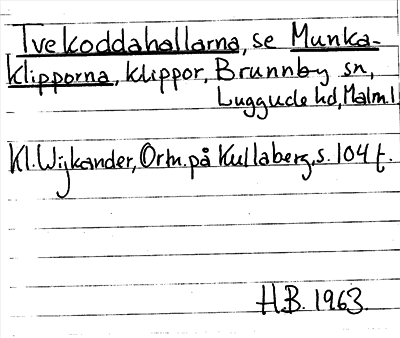 Tvekoddahallarna, se Munka-
klipporna, klippor, Brunnby sn,
Luggude hd, Malm.l.
Kl. Wijkander, Ortn. på Kullaberg, s. 104 f.
H.B. 1963.